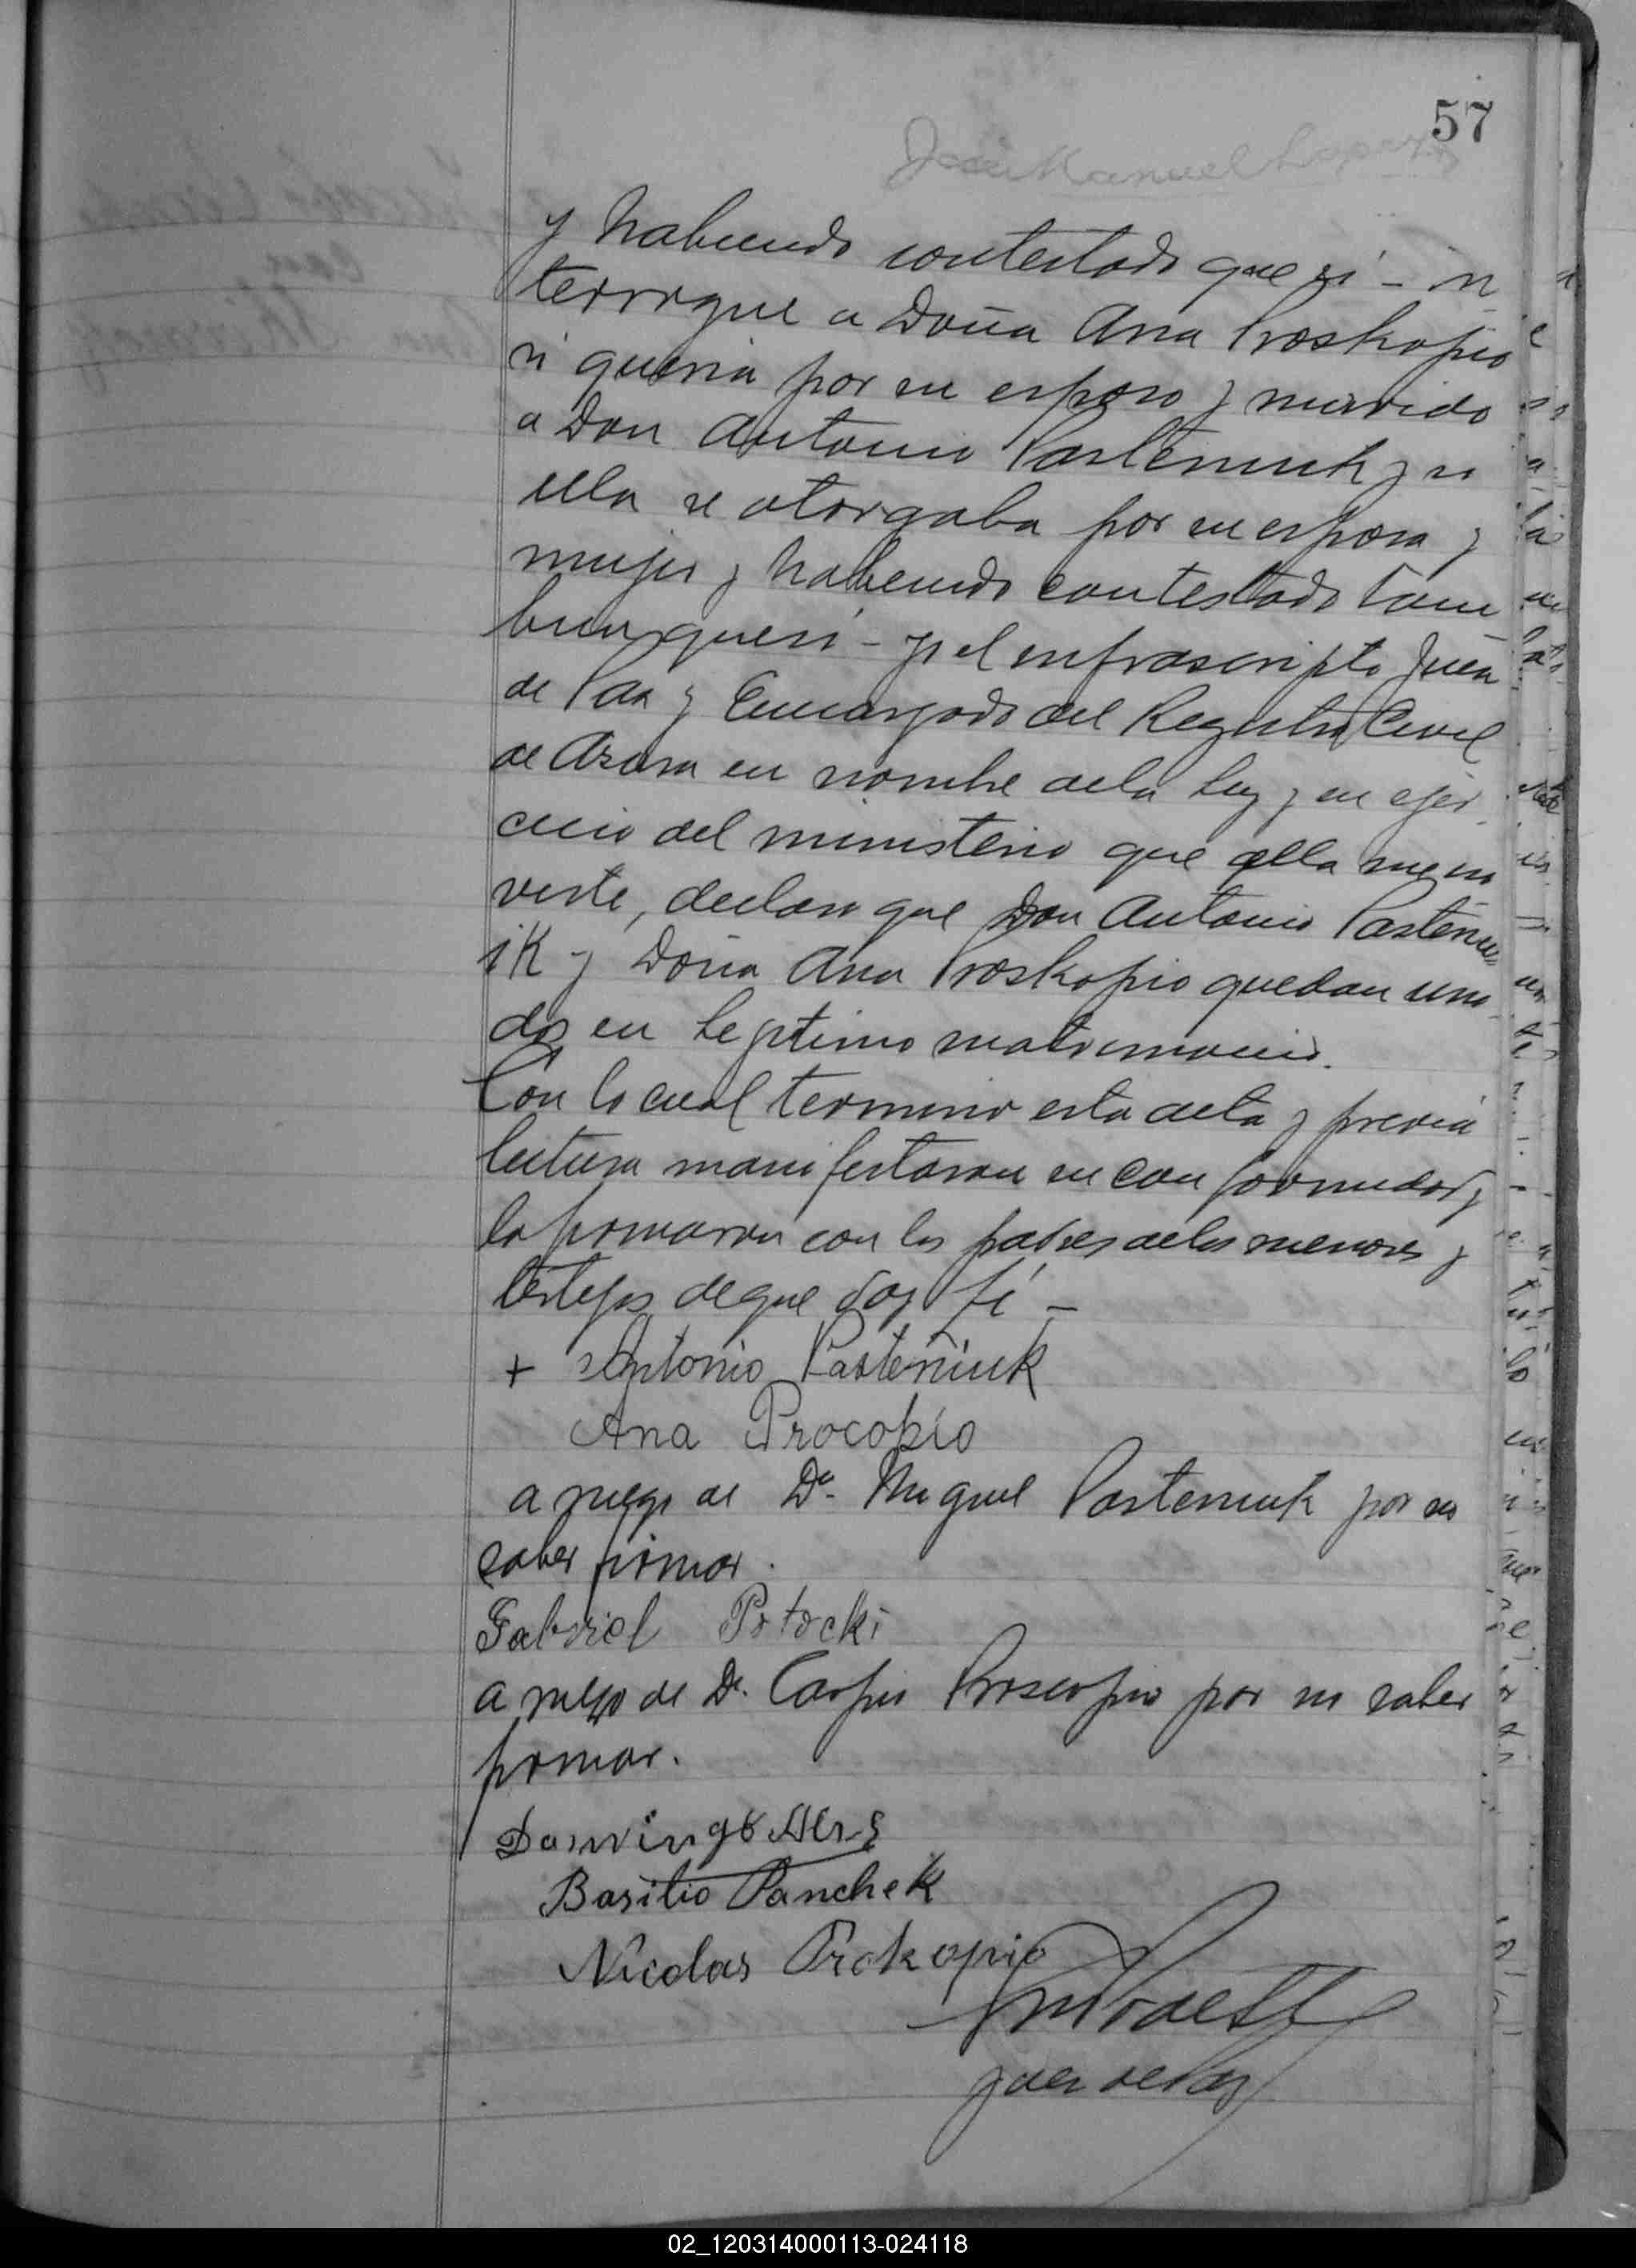 57
José Manuel Lopez
y habiendo contestado que si - in
terrogue a Doña Ana Proskopio
si queria por su esposo y marido
a Don Antonio Pasteniuk y si
ella se otorgaba por su esposa y
mujer y habiendo contestado tam
bien que si - yo el infrascripto Juez
de Paz y Encargado del Registro Civil
de Azara en nombre de la ley y en ejer
cicio del ministerio que ella me in
viste, declaro que Don Antonio Pasteni
ik y Doña Ana Proskopio quedan uni
dos en legitimo matrimonio.
Con lo cual termino esta acta y previa
lectura manifestaron su conformidad y
la firmaron con los padres de los menores y
testigos de que doy fé -
+ Antonio Pasteniuk
Ana Procopio
a ruego de Dn. Miguel Pasteniuk por no
saber firmar.
Gabriel Potocki
a ruego de Dn. Carpio Proscopio por no saber
firmar.
Domingo
Basilio Panchek
Nicolas Prokopio
Juez de Paz
02_120314000113-024118